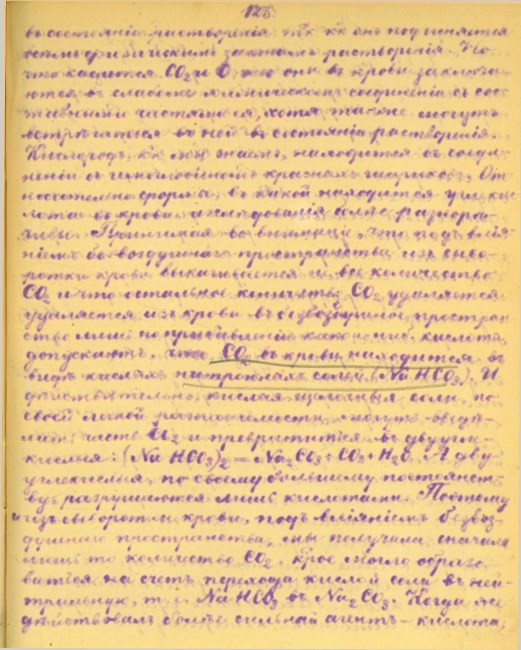 125.
въ состоянiи растворенiя т. к. онъ подчиняется
всѣмъ физическимъ законамъ растворенiя. Что
что касается CO2 и O, то они въ крови заключа-
ются въ слабомъ химическомъ соединенiи съ сос-
тавными частями, хотя также могутъ
встрѣчаться въ ней въ состоянiи растворенiя.
Кислородъ, кк мы знаемъ, находится въ соеди-
ненiи съ гемоглобиномъ красныхъ шариковъ. От-
носительно формы, въ какой находится углекис-
лота въ крови изслѣдованiя болѣе разнорѣ-
чивы. Принимая во вниманiе, что подъ влiя-
нiемъ безвоздушнаго пространства изъ сыво-
ротки крови выкачивается не все количество
CO2 и что остальное количество CO2 удаляется
удаляется изъ крови въ безвоздушное простран-
ство лишь по прибавленiи какой ниб. кислоты,
допускаютъ, что CO2 въ крови находится въ
видѣ кислыхъ натровыхъ солей (NaHCO3). И
дѣйствительно, кислыя щелочныя соли, по
своей легкой разлагаемости, могутъ выдѣ-
лить часть CO2 и превратиться въ двуугле-
кислыя: (NaHCO3)2 = Na2CO3 + CO2 + H2O. А дву-
углекислыя, по своему большему постоянст-
ву, разрушаются лишь кислотами. Поэтому
и изъ сыворотки крови, подъ влiянiемъ безвоз-
душнаго пространства, мы получали сначала
лишь то количество CO2, крое могло образо-
ваться на счетъ перехода кислой соли въ ней-
тральную, т. е. NaHCO3 въ Na2CO3. Когда же
дѣйствовалъ болѣе сильный агентъ - кислота,